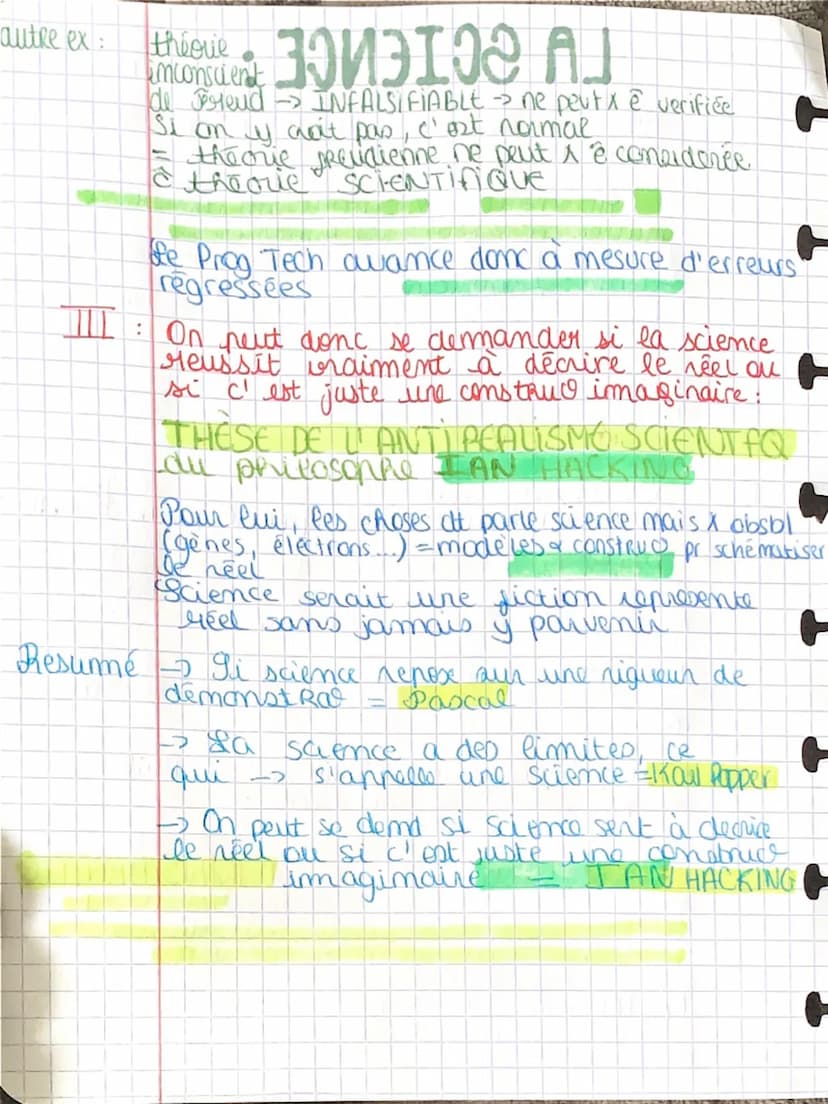 LA SCIENCE
autre ex : théorie
inconscient
de Freud → INFALSIFIABLE → ne peut x ê verifiée
Si on y croit pas, c'est normal
= théorie freudienne ne peut x ê considérée
ê théorie "SCIENTIFIQUE
Le Prog Tech avance donc à mesure d'erreurs
régressées
III : On peut donc se demander si la science
reussit vraiment à décrire le réel ou
si c'est juste une construc° imaginaire :
THÈSE DE L'ANTIREALISME SCIENTFQ
du philosophe IAN HACKING
Pour lui, les choses dt parle science mais x obsbl
(gènes, électrons...) = modèles & construc° pr schématiser
le réel
Science serait une fiction représente
réel sans jamais y parvenir
Resumé → Si science repose sur une rigueur de
démonstra° = Pascal
→ La science a des limites, ce
qui → s'appelle une science = Karl Popper
→ On peut se demd si science sert à decrire
le réel ou si c'est juste une construc°
imaginaire = IAN HACKING